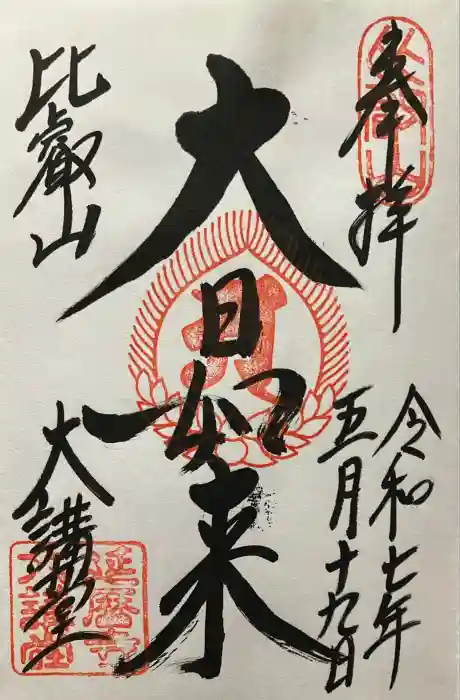 奉拝
令和七年
五月十九日
大日如来
比叡山
大講堂
比叡山
延暦寺
大講堂